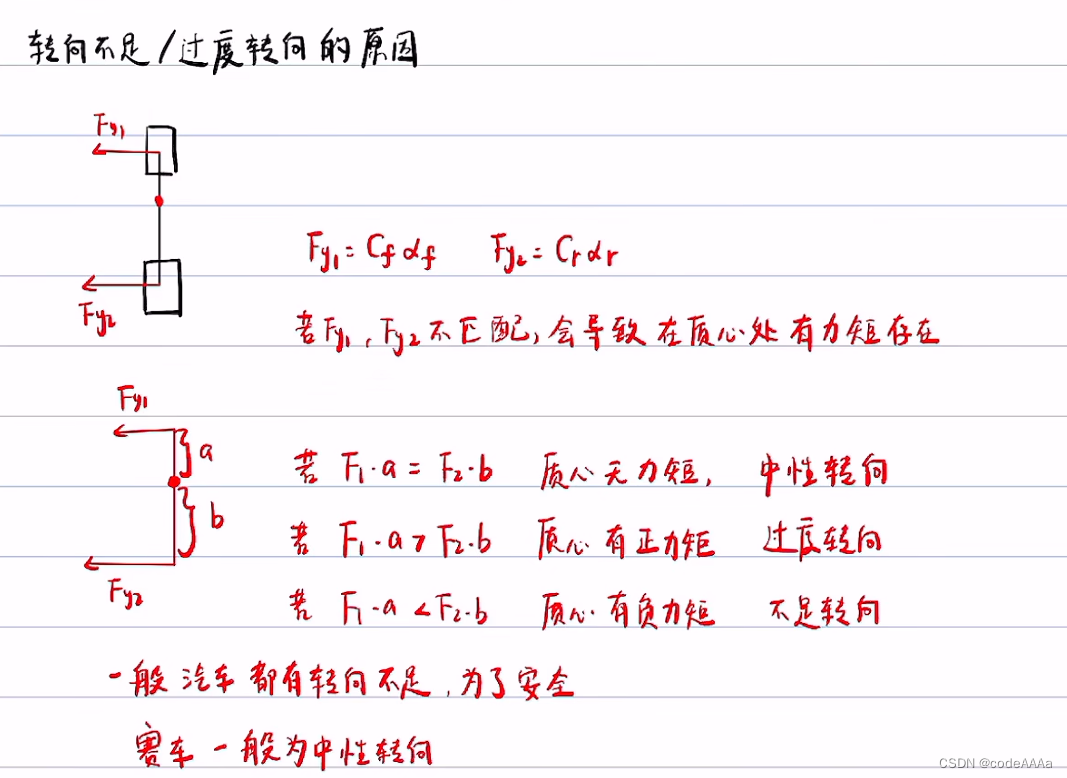 转向不足/过度转向的原因
Fy₁
Fy₁=Cfαf Fy₂=Crαr
Fy₂
若Fy₁,Fy₂不匹配,会导致在质心处有力短存在
Fy₁
a
若 F₁·a = F₂·b 质心无力短, 中性转向
b
若 F₁·a > F₂·b 质心有正力矩 过度转向
Fy₂
若 F₁·a < F₂·b 质心有负力短 不足转向
一般汽车都有转向不足,为了安全
赛车一般为中性转向
CSDN @codeAAAa